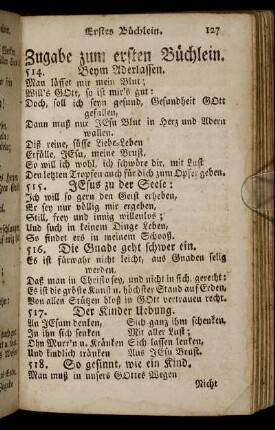 Erstes Büchlein. 127
Zugabe zum ersten Büchlein.
514. Beym Aderlassen.
Man lässet mir mein Blut;
Will's GOtt, so ist mir's gut:
Doch, soll ich seyn gesund, Gesundheit GOtt
gefallen,
Dann muß nur JEsu Blut in Herz und Adern
wallen.
Diß reine, süsse Liebe-Leben
Erfülle, JEsu, meine Brust,
So will ich wohl, ich schwöre dir, mit Lust
Den letzten Tropfen auch für dich zum Opfer geben.
515. JEsus zu der Seele:
Ich will so gern den Geist erheben,
Er sey nur völlig mir ergeben,
Still, frey und innig willenlos;
Und such in keinem Dinge Leben,
So findet ers in meinem Schooß.
516. Die Gnade geht schwer ein.
Es ist fürwahr nicht leicht, aus Gnaden selig
werden,
Daß man in Christo sey, und nicht in sich, gerecht:
Es ist die größte Kunst u. höchster Stand auf Erden,
Von allen Stützen bloß in GOtt vertrauen recht.
517. Der Kinder Uebung.
An JEsum denken, Sich ganz ihm schenken,
In ihn sich senken Mit aller Lust;
Ohn Murr'n u. Kränken Sich lassen lenken,
Und kindlich tränken Aus JEsu Brust.
518. So gesinnt, wie ein Kind.
Man muß in unsers GOttes Wegen
Nicht